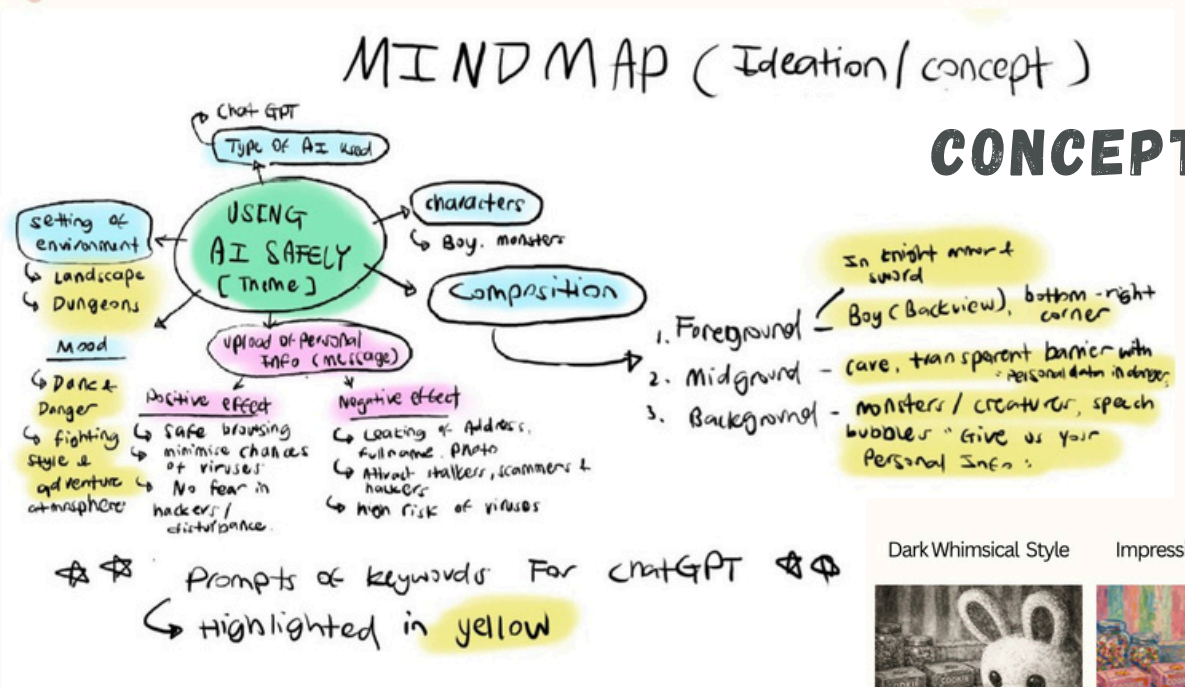 MINDMAP (Ideation/concept)
CONCEPT
Chat GPT
Type of AI used
USING
AI SAFELY
[Theme]
characters
Boy, monsters
setting of
environment
Landscape
Dungeons
Composition
Mood
Danger
fighting
style &
adventure
atmosphere
upload of Personal
Info (message)
Positive effect
safe browsing
minimise chances
of viruses
No fear in
hackers/
disturbance.
Negative effect
Leaking of Address,
full name, photo
Attract stalkers, scammers &
hackers
high risk of viruses
In knight armor &
sword
1. Foreground
Boy (Backview), bottom-right
corner
2. Midground - cave, transparent barrier with
"Personal data in danger
3. Background - monsters / creatures, speech
bubbles "Give us your
Personal Info:
Prompts of keywords For chatGPT
Highlighted in yellow
Dark Whimsical Style
Impressi
COOKIE
COOKIE